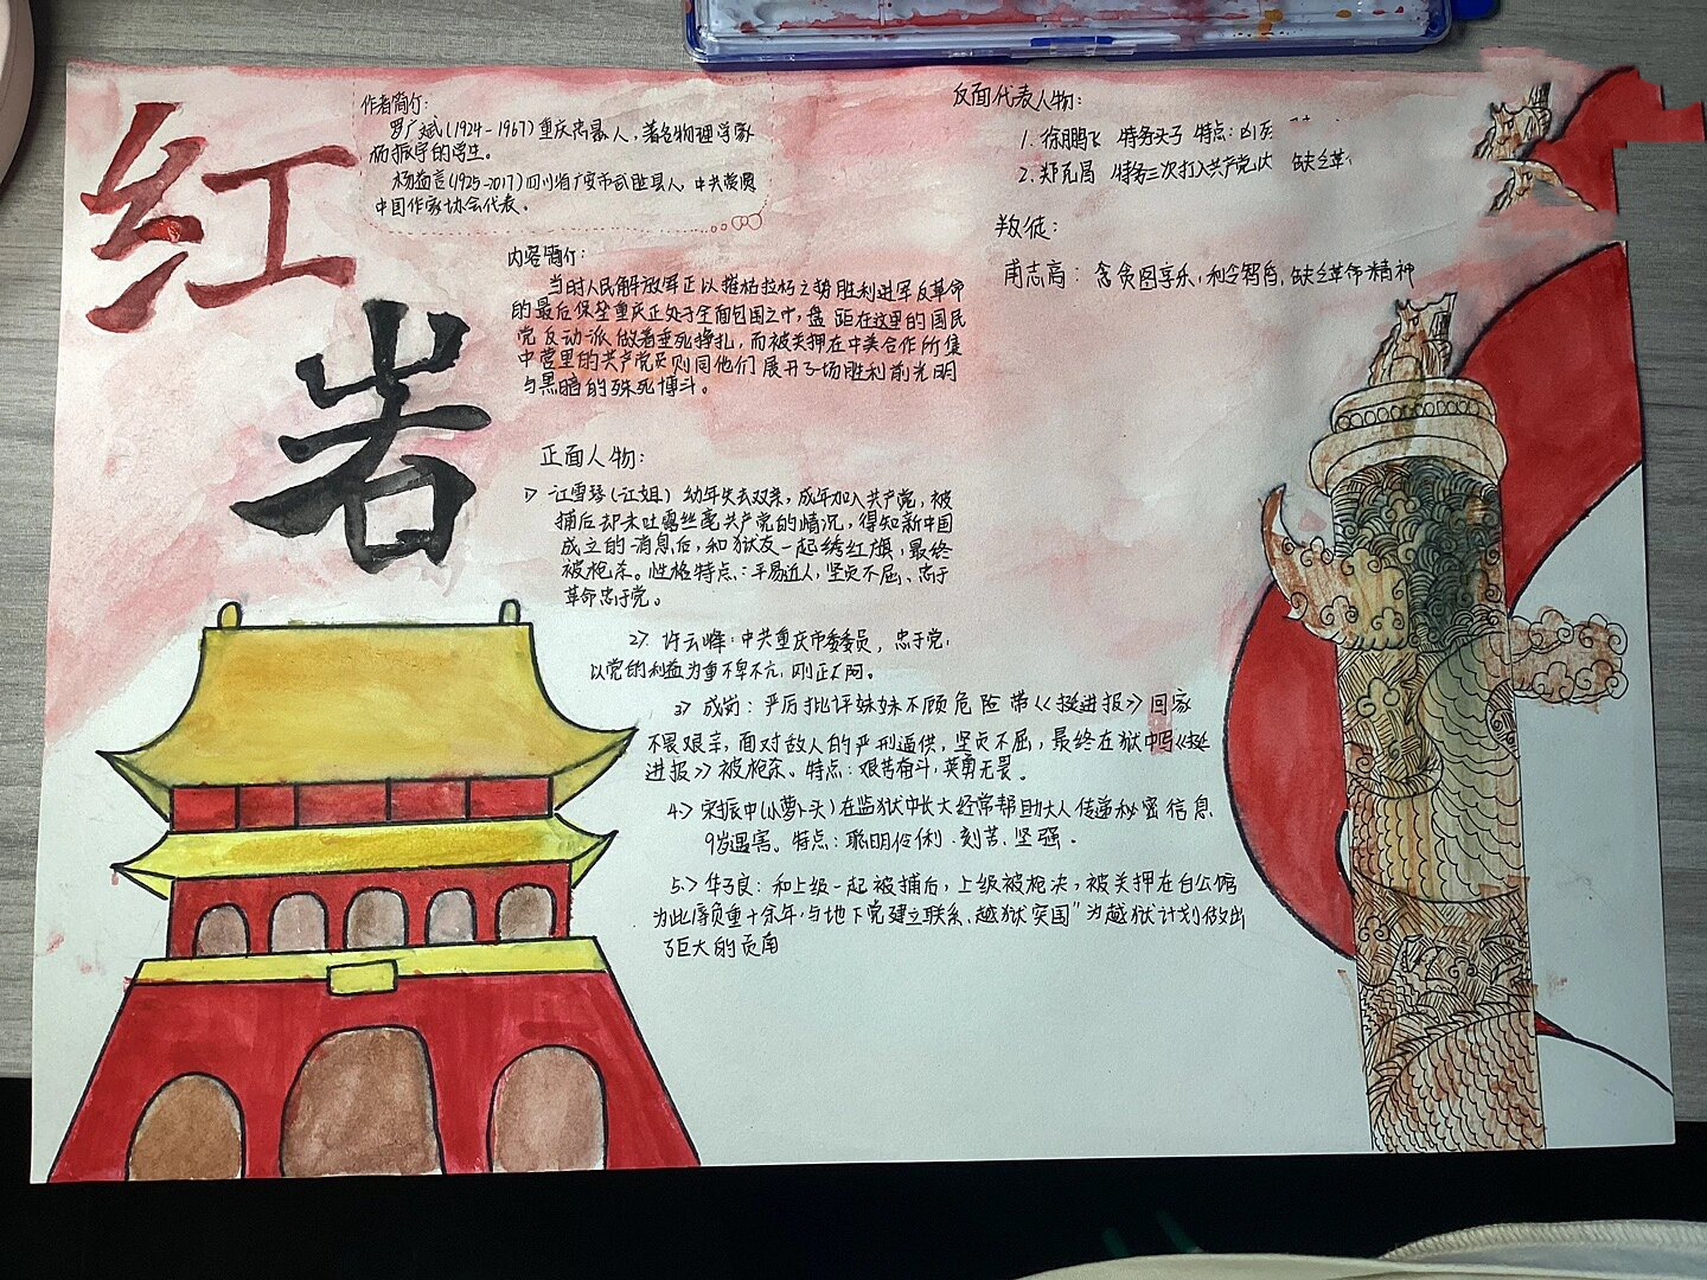 红
岩
作者简介:
罗广斌(1924-1967)重庆忠县人,著名物理学家
杨振宇的学生。
杨益言(1925-2017)四川省广安市武胜县人,中共党员
中国作家协会代表。
内容简介:
当时人民解放军正以摧枯拉朽之势胜利进军反革命
的最后保垒重庆正处于全面包围之中,盘距在这里的国民
党反动派做着垂死挣扎,而被关押在中美合作所集
中营里的共产党员则同他们展开了场胜利前光明
与黑暗的殊死博斗。
正面人物:
1> 江雪琴(江姐) 幼年失去双亲,成年加入共产党,被
捕后却未吐露丝毫共产党的情况,得知新中国
成立的消息后,和狱友一起绣红旗,最终
被枪杀。性格特点:平易近人,坚贞不屈、忠于
革命忠于党。
2>. 许云峰:中共重庆市委委员,忠于党,
以党的利益为重不卑不亢,刚正不阿。
3> 成岗:严厉批评妹妹不顾危险带<<挺进报>>回家
不畏艰辛,面对敌人的严刑逼供,坚贞不屈,最终在狱中写<<挺
进报>>被枪杀。特点:艰苦奋斗,英勇无畏。
4> 宋振中(小萝卜头)在监狱中长大经常帮助大人传递秘密信息,
9岁遇害。特点:聪明伶俐、刻苦、坚强.
5.> 华子良:和上级一起被捕后,上级被枪决,被关押在白公馆
为此辱负重十余年,与地下党建立联系、越狱突围"为越狱计划做出
了巨大的贡南
反面代表人物:
1. 徐鹏飞 特务头子 特点:凶
2. 郑克昌 特务三次打入共产党 缺乏革
叛徒:
甫志高:贪图享乐,利令智昏,缺乏革命精神